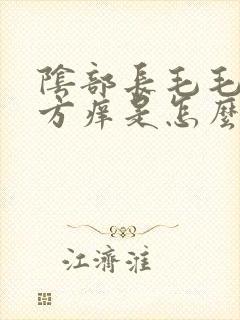 陰部長毛毛
方癢是怎麼
江濟淮